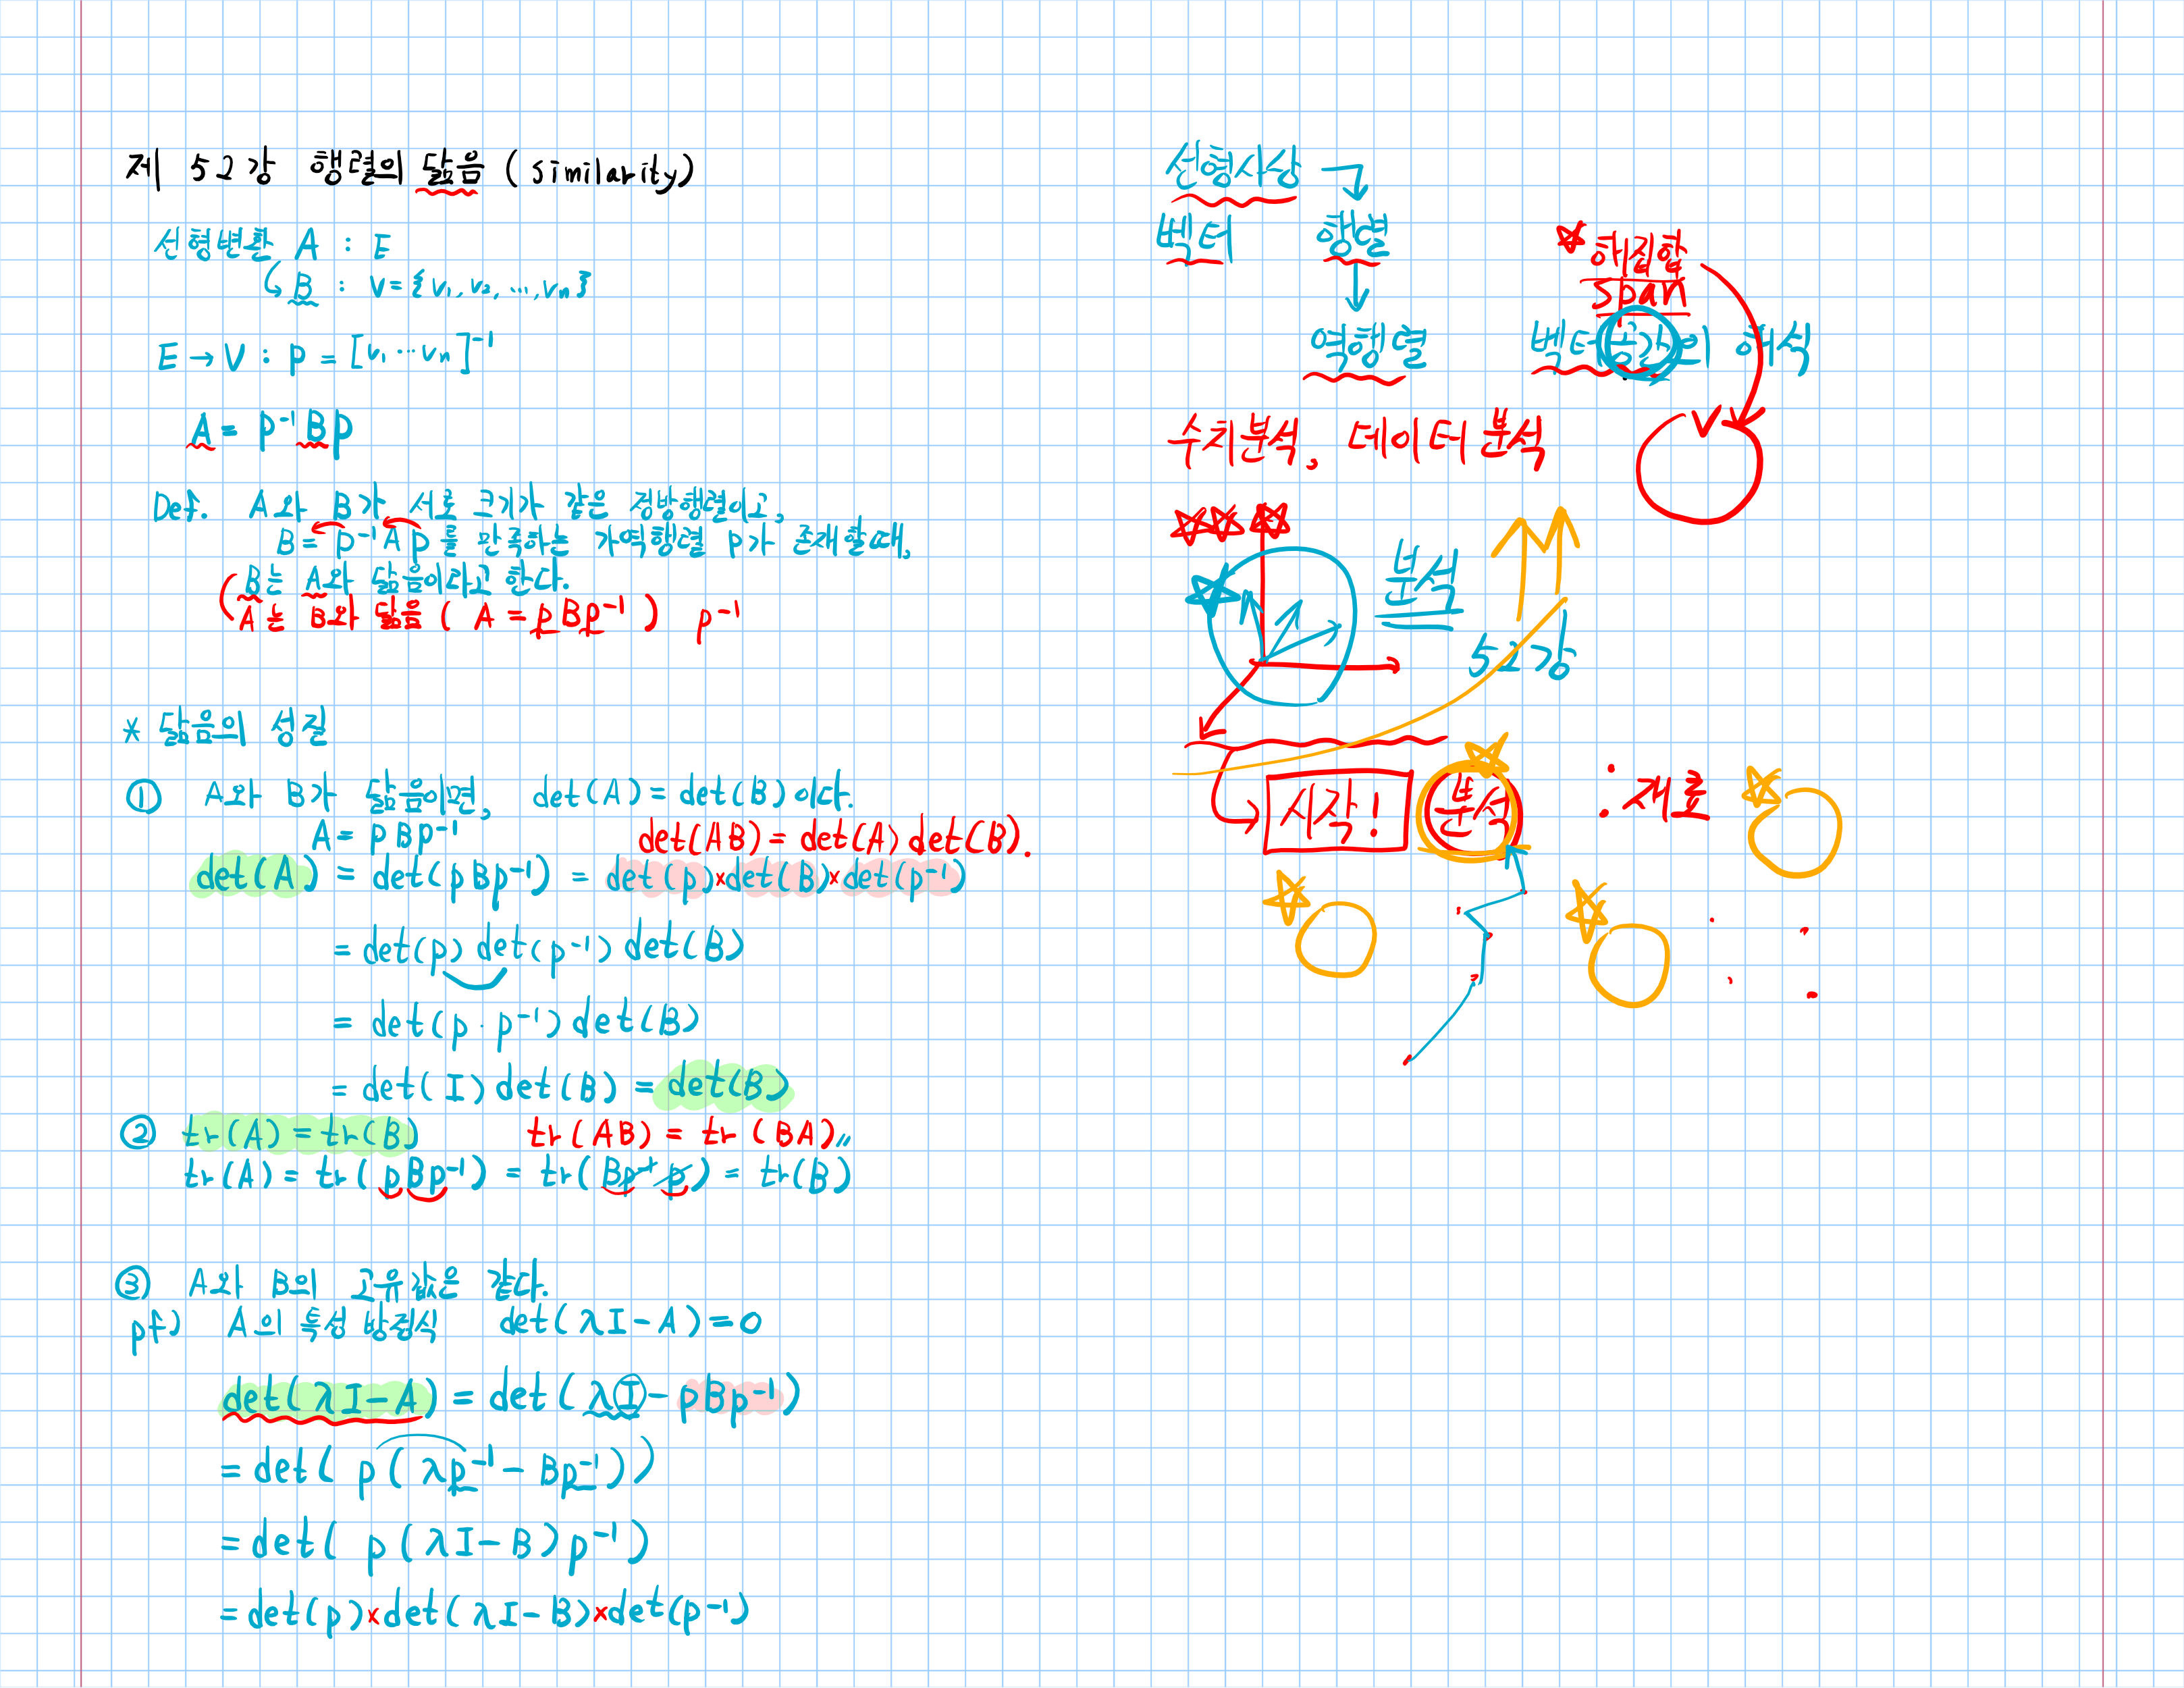 제 52강 행렬의 닮음 (similarity)
선형변환 A : E
B : V = {v₁, v₂, ..., vₙ}
E → V : p = [v₁ ⋯ vₙ]⁻¹
A = p⁻¹Bp
Def. A와 B가 서로 크기가 같은 정방행렬이고,
B = p⁻¹Ap를 만족하는 가역행렬 p가 존재할때,
B는 A와 닮음이라고 한다.
A는 B와 닮음 ( A = pBp⁻¹ ) p⁻¹
* 닮음의 성질
① A와 B가 닮음이면, det(A) = det(B) 이다.
A = pBp⁻¹ det(AB) = det(A) det(B).
det(A) = det(pBp⁻¹) = det(p)×det(B)×det(p⁻¹)
= det(p) det(p⁻¹) det(B)
= det(p · p⁻¹) det(B)
= det(I) det(B) = det(B)
② tr(A) = tr(B) tr(AB) = tr(BA)〃
tr(A) = tr(pBp⁻¹) = tr(Bp⁻¹p) = tr(B)
③ A와 B의 고유값은 같다.
pf) A의 특성 방정식 det(λI-A) = 0
det(λI-A) = det(λI - pBp⁻¹)
= det( p(λp⁻¹ - Bp⁻¹))
= det( p(λI-B)p⁻¹)
= det(p)×det(λI-B)×det(p⁻¹)
선형사상
벡터 행렬
해집합
span
역행렬 벡터공간의 해석
수치분석, 데이터 분석
V
분석
52강
시작! 분석 : 재료